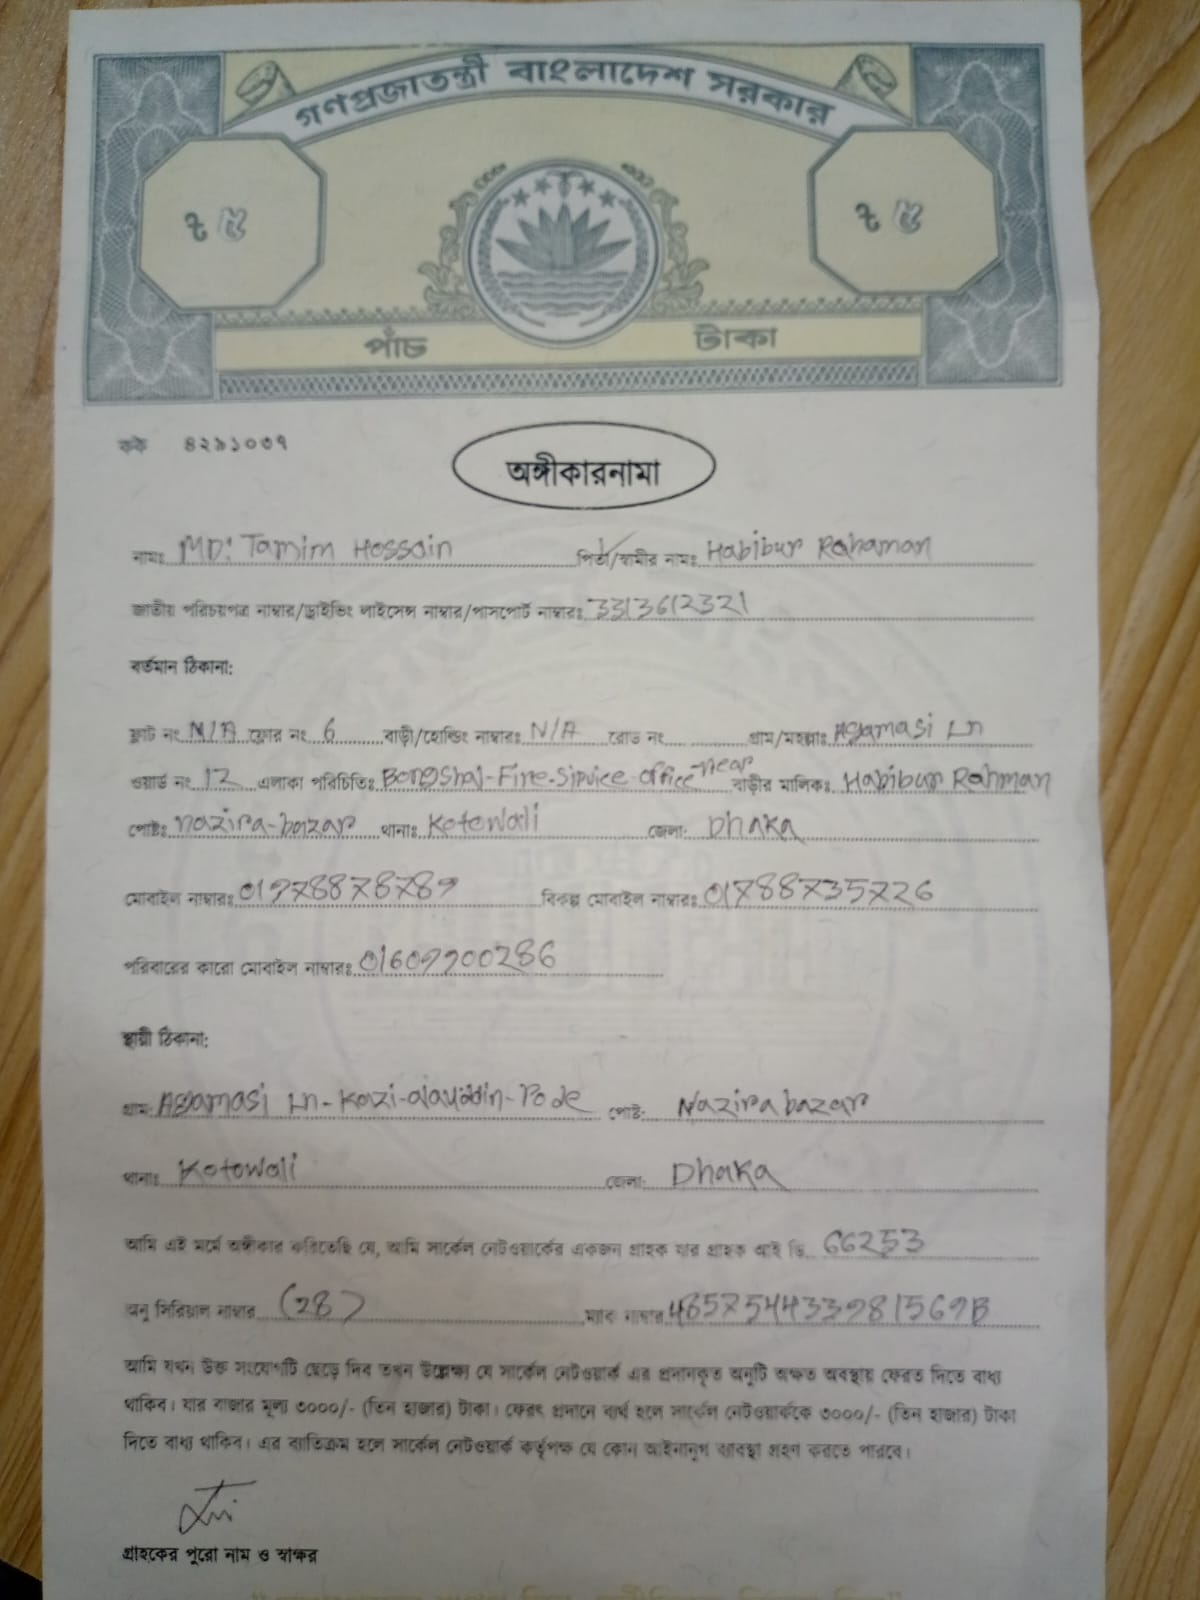 গণপ্রজাতন্ত্রী বাংলাদেশ সরকার
৳ ৫ ৳ ৫
পাঁচ টাকা
কক ৪২৯১০৩৭
অঙ্গীকারনামা
নামঃ MD: Tamim Hossain পিতা/স্বামীর নামঃ Habibur Rahaman
জাতীয় পরিচয়পত্র নাম্বার/ড্রাইভিং লাইসেন্স নাম্বার/পাসপোর্ট নাম্বারঃ 3313612321
বর্তমান ঠিকানা:
ফ্লাট নং N/A ফ্লোর নং 6 বাড়ী/হোল্ডিং নাম্বারঃ N/A রোড নং গ্রাম/মহল্লাঃ Agamasi Ln
ওয়ার্ড নং 12 এলাকা পরিচিতিঃ Bongshal-Fire-Sirvice-office-near বাড়ীর মালিকঃ Habibur Rahman
পোষ্টঃ Nazira-bazar থানাঃ Kotowali জেলা: Dhaka
মোবাইল নাম্বারঃ 01978878789 বিকল্প মোবাইল নাম্বারঃ 01788735726
পরিবারের কারো মোবাইল নাম্বারঃ 01609900286
স্থায়ী ঠিকানা:
গ্রাম: Agamasi Ln-Kazi-alauddin- পোষ্ট: Nazirabazar
থানাঃ Kotowali জেলা: Dhaka
আমি এই মর্মে অঙ্গীকার করিতেছি যে, আমি সার্কেল নেটওয়ার্কের একজন গ্রাহক যার গ্রাহক আই ডি 66253
অনু সিরিয়াল নাম্বার (28) ম্যাক নাম্বার 485754433981569B
আমি যখন উক্ত সংযোগটি ছেড়ে দিব তখন উল্লেক্ষ্য যে সার্কেল নেটওয়ার্ক এর প্রদানকৃত অনুটি অক্ষত অবস্থায় ফেরত দিতে বাধ্য
থাকিব। যার বাজার মূল্য ৩০০০/- (তিন হাজার) টাকা। ফেরৎ প্রদানে ব্যর্থ হলে সার্কেল নেটওয়ার্ককে ৩০০০/- (তিন হাজার) টাকা
দিতে বাধ্য থাকিব। এর ব্যতিক্রম হলে সার্কেল নেটওয়ার্ক কর্তৃপক্ষ যে কোন আইনানুগ ব্যাবস্থা গ্রহণ করতে পারবে।
গ্রাহকের পুরো নাম ও স্বাক্ষর